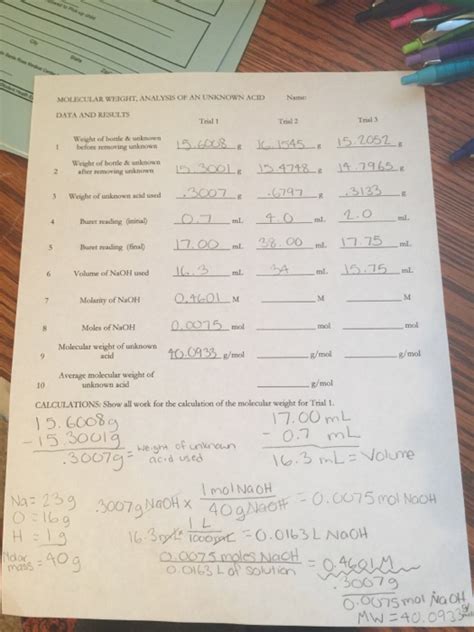 MOLECULAR WEIGHT, ANALYSIS OF AN UNKNOWN ACID Name:
DATA AND RESULTS
Trial 1 Trial 2 Trial 3
1 Weight of bottle & unknown before removing unknown 15.6008 g 16.1545 g 15.2052 g
2 Weight of bottle & unknown after removing unknown 15.3001 g 15.4748 g 14.7965 g
3 Weight of unknown acid used .3007 g .6797 g .3133 g
4 Buret reading (initial) 0.7 mL 4.0 mL 2.0 mL
5 Buret reading (final) 17.00 mL 38.00 mL 17.75 mL
6 Volume of NaOH used 16.3 mL 34 mL 15.75 mL
7 Molarity of NaOH 0.4601 M M M
8 Moles of NaOH 0.0075 mol mol mol
9 Molecular weight of unknown acid 40.0933 g/mol g/mol g/mol
10 Average molecular weight of unknown acid g/mol
CALCULATIONS: Show all work for the calculation of the molecular weight for Trial 1.
15.6008g
- 15.3001g
.3007g = weight of unknown acid used
17.00 mL
- 0.7 mL
16.3 mL = Volume
Na = 23g
O = 16g
H = 1g
Molar mass = 40g
.3007g NaOH x 1 mol NaOH / 40g NaOH = 0.0075 mol NaOH
16.3 mL x 1 L / 1000 mL = 0.0163 L NaOH
0.0075 moles NaOH / 0.0163 L of solution = 0.4601 M
.3007g
0.0075 mol NaOH
MW = 40.0933